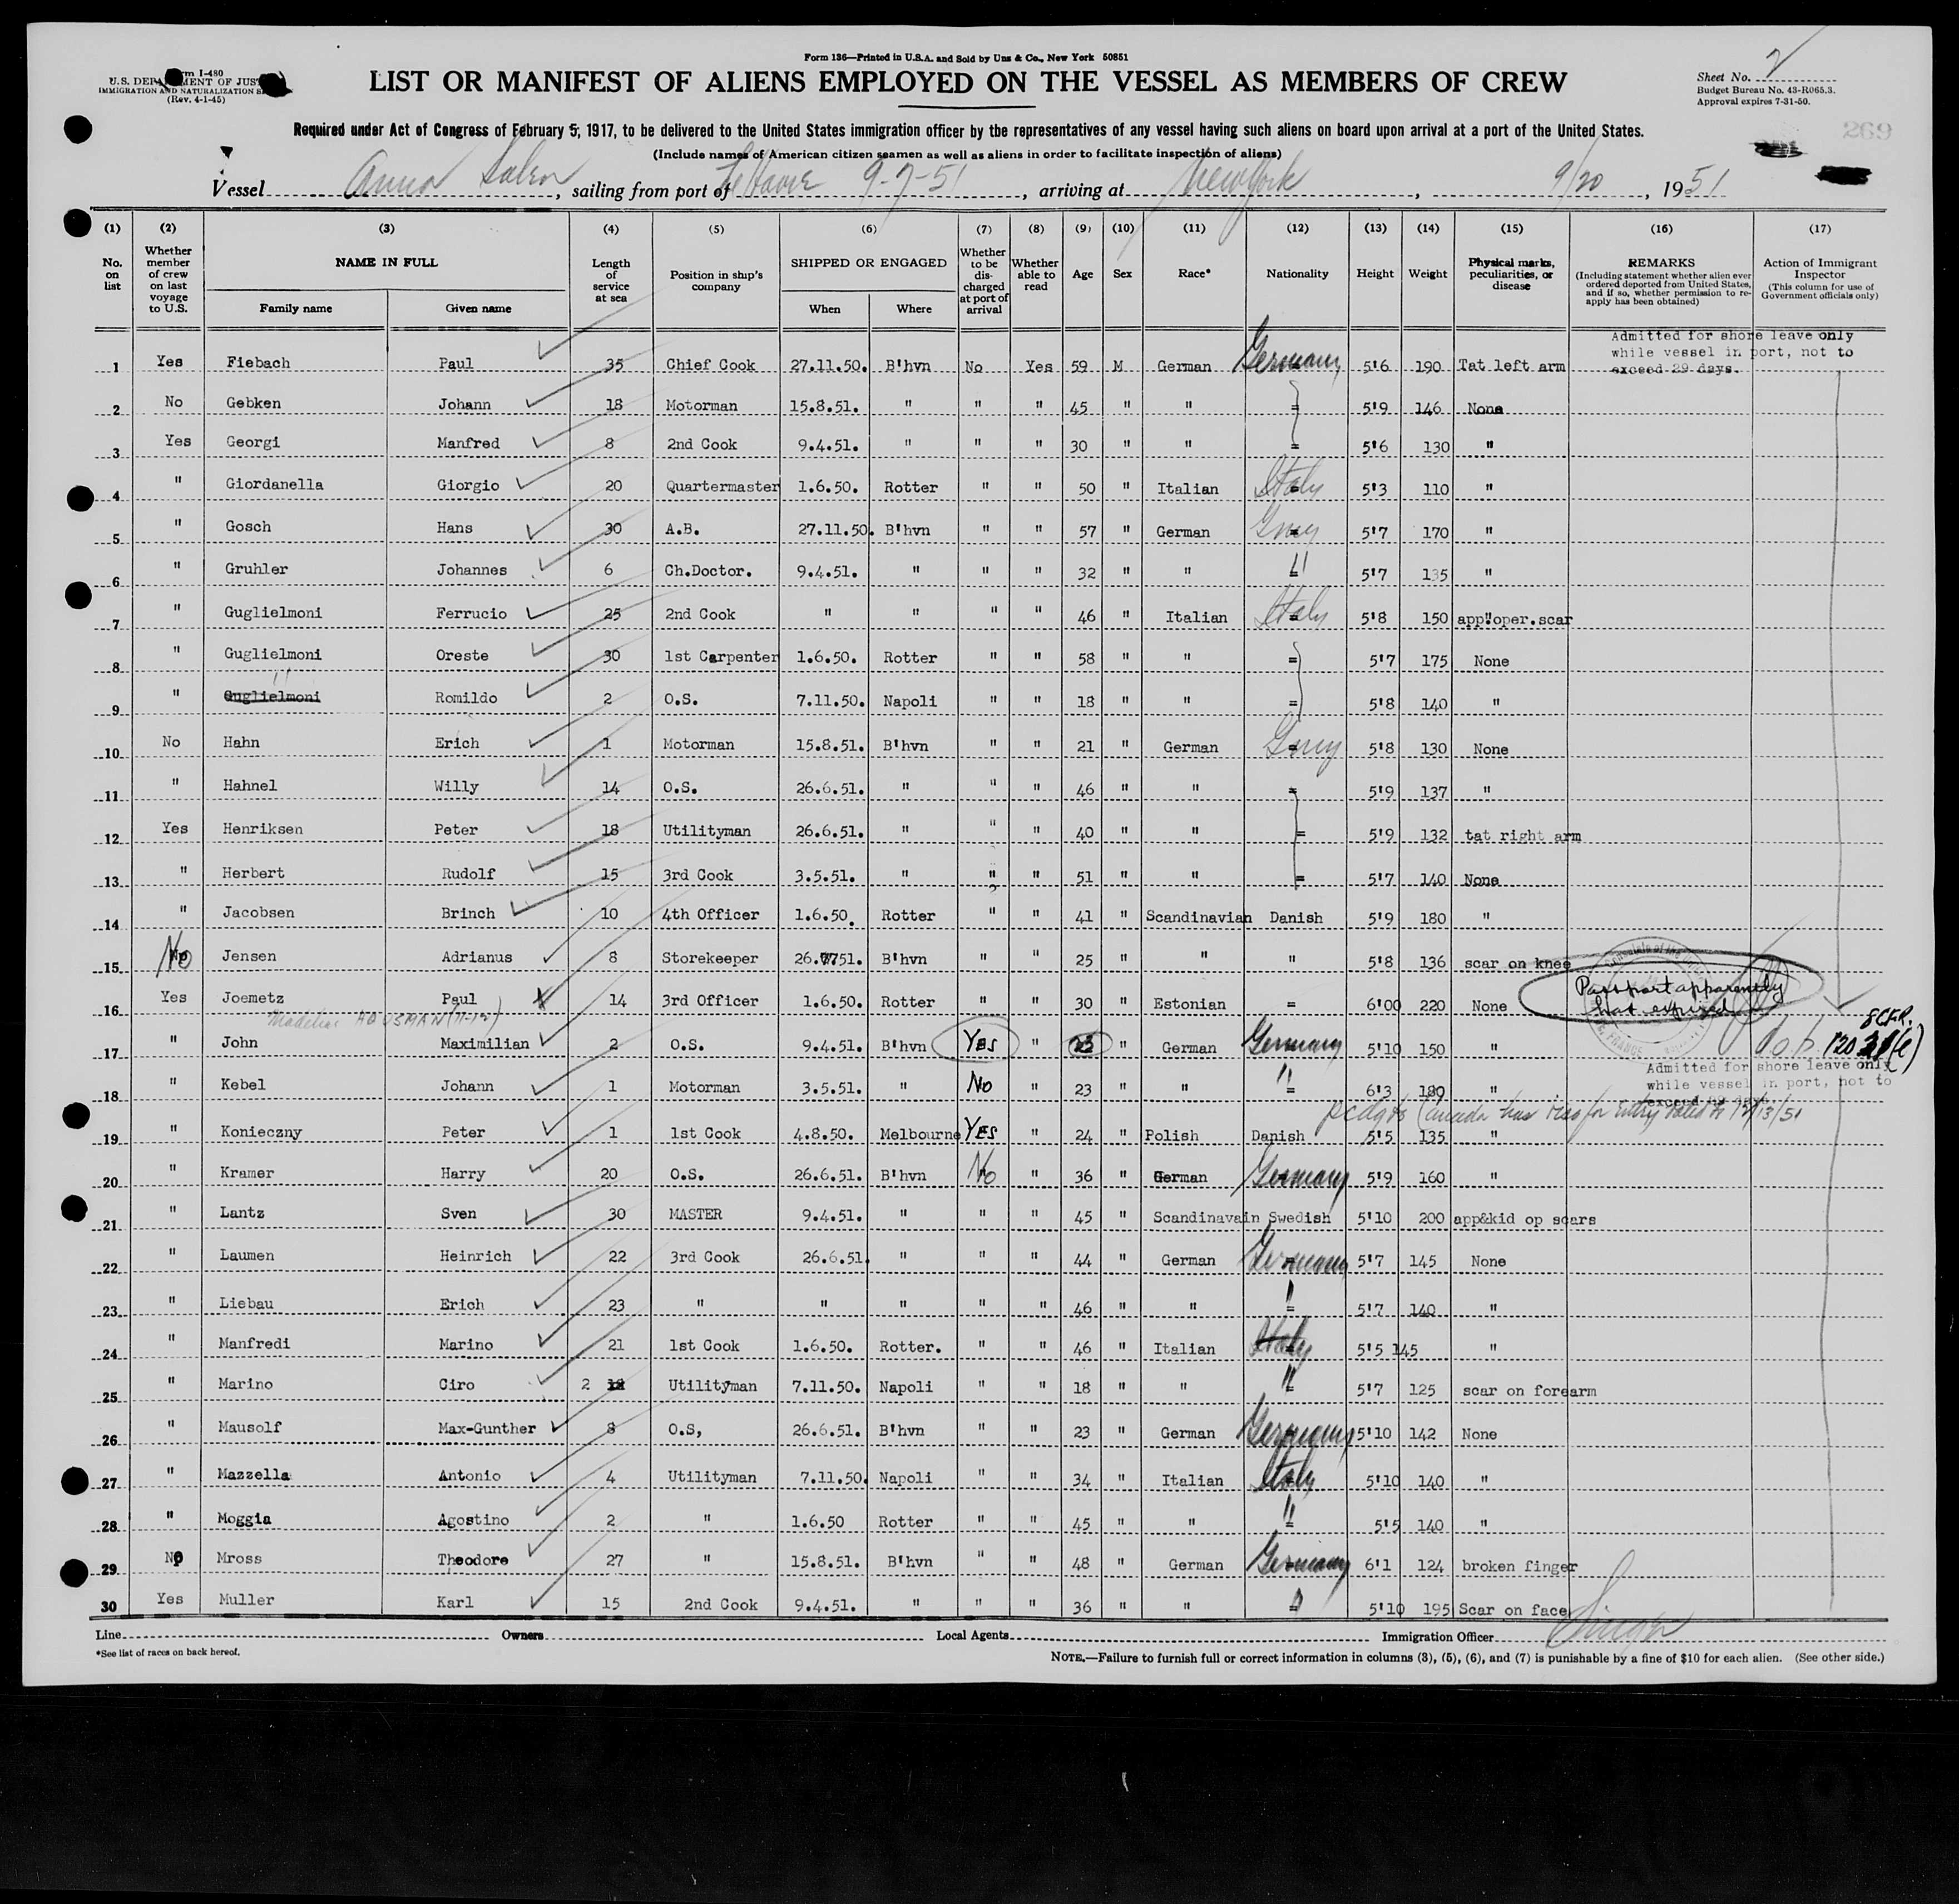 Form 136—Printed in U.S.A. and Sold by Unz & Co., New York 50851
Form I-480
U.S. DEPARTMENT OF JUSTICE
IMMIGRATION AND NATURALIZATION
(Rev. 4-1-45)
LIST OR MANIFEST OF ALIENS EMPLOYED ON THE VESSEL AS MEMBERS OF CREW
Sheet No. 2
Budget Bureau No. 43-R065.3.
Approval expires 7-31-50.
269
Required under Act of Congress of February 5, 1917, to be delivered to the United States immigration officer by the representatives of any vessel having such aliens on board upon arrival at a port of the United States.
(Include names of American citizen seamen as well as aliens in order to facilitate inspection of aliens)
Vessel Anna Salen, sailing from port of Le Havre 9-7-51, arriving at New York, 9/20, 1951
(1) (2) (3) (4) (5) (6) (7) (8) (9) (10) (11) (12) (13) (14) (15) (16) (17)
No. on list
Whether member of crew on last voyage to U.S.
NAME IN FULL
Family name Given name
Length of service at sea
Position in ship's company
SHIPPED OR ENGAGED
When Where
Whether to be discharged at port of arrival
Whether able to read
Age Sex Race* Nationality Height Weight
Physical marks, peculiarities, or disease
REMARKS
(Including statement whether alien ever ordered deported from United States, and if so, whether permission to reapply has been obtained)
Action of Immigrant Inspector
(This column for use of Government officials only)
Admitted for shore leave only
while vessel in port, not to
exceed 29 days.
1 Yes Fiebach Paul 35 Chief Cook 27.11.50. B'hvn No Yes 59 M German Germany 5'6 190 Tat left arm
2 No Gebken Johann 18 Motorman 15.8.51. " " " 45 " " = 5'9 146 None
3 Yes Georgi Manfred 8 2nd Cook 9.4.51. " " " 30 " " = 5'6 130 "
4 " Giordanella Giorgio 20 Quartermaster 1.6.50. Rotter " " 50 " Italian Italy 5'3 110 "
5 " Gosch Hans 30 A.B. 27.11.50. B'hvn " " 57 " German Grmy 5'7 170 "
6 " Gruhler Johannes 6 Ch.Doctor. 9.4.51. " " " 32 " " " 5'7 135 "
7 " Guglielmoni Ferrucio 25 2nd Cook " " " " 46 " Italian Italy 5'8 150 app"oper.scar
8 " Guglielmoni Oreste 30 1st Carpenter 1.6.50. Rotter " " 58 " " = 5'7 175 None
9 " Guglielmoni " Romildo 2 O.S. 7.11.50. Napoli " " 18 " " = 5'8 140 "
10 No Hahn Erich 1 Motorman 15.8.51. B'hvn " " 21 " German Grmy 5'8 130 None
11 " Hahnel Willy 14 O.S. 26.6.51. " " " 46 " " = 5'9 137 "
12 Yes Henriksen Peter 18 Utilityman 26.6.51. " " " 40 " " = 5'9 132 tat right arm
13 " Herbert Rudolf 15 3rd Cook 3.5.51. " " " 51 " " = 5'7 140 None
14 " Jacobsen Brinch 10 4th Officer 1.6.50. Rotter " " 41 " Scandinavian Danish 5'9 180 "
15 No Jensen Adrianus 8 Storekeeper 26.7751. B'hvn " " 25 " " " 5'8 136 scar on knee
16 Yes Joemetz Paul 14 3rd Officer 1.6.50. Rotter " " 30 " Estonian = 6'00 220 None Passport apparently
has expired
HAUSMAN (11-12)
17 " John Maximilian 2 O.S. 9.4.51. B'hvn Yes " 23 " German Germany 5'10 150 "
8 CFR.
Admitted for shore leave only
while vessel in port, not to
exceed 29 days.
18 " Kebel Johann 1 Motorman 3.5.51. " No " 23 " " " 6'3 180 "
Canada has visa for entry dated 13/51
19 " Konieczny Peter 1 1st Cook 4.8.50. Melbourne YES " 24 " Polish Danish 5'5 135 "
20 " Kramer Harry 20 O.S. 26.6.51. B'hvn No " 36 " German Germany 5'9 160 "
21 " Lantz Sven 30 MASTER 9.4.51. " " " 45 " Scandinavain Swedish 5'10 200 app&kid op scars
22 " Laumen Heinrich 22 3rd Cook 26.6.51. " " " 44 " German Germany 5'7 145 None
23 " Liebau Erich 23 " " " " " 46 " " " 5'7 140 "
24 " Manfredi Marino 21 1st Cook 1.6.50. Rotter. " " 46 " Italian Italy 5'5 145 "
25 " Marino Ciro 2 Utilityman 7.11.50. Napoli " " 18 " " " 5'7 125 scar on forearm
26 " Mausolf Max-Gunther 8 O.S, 26.6.51. B'hvn " " 23 " German Germany 5'10 142 None
27 " Mazzella Antonio 4 Utilityman 7.11.50. Napoli " " 34 " Italian Italy 5'10 140 "
28 " Moggia Agostino 2 " 1.6.50 Rotter " " 45 " " " 5'5 140 "
29 No Mross Theodore 27 " 15.8.51. B'hvn " " 48 " German Germany 6'1 124 broken finger
30 Yes Muller Karl 15 2nd Cook 9.4.51. " " " 36 " " " 5'10 195 Scar on face
Line Owners Local Agents Immigration Officer
*See list of races on back hereof.
NOTE.—Failure to furnish full or correct information in columns (3), (5), (6), and (7) is punishable by a fine of $10 for each alien. (See other side.)